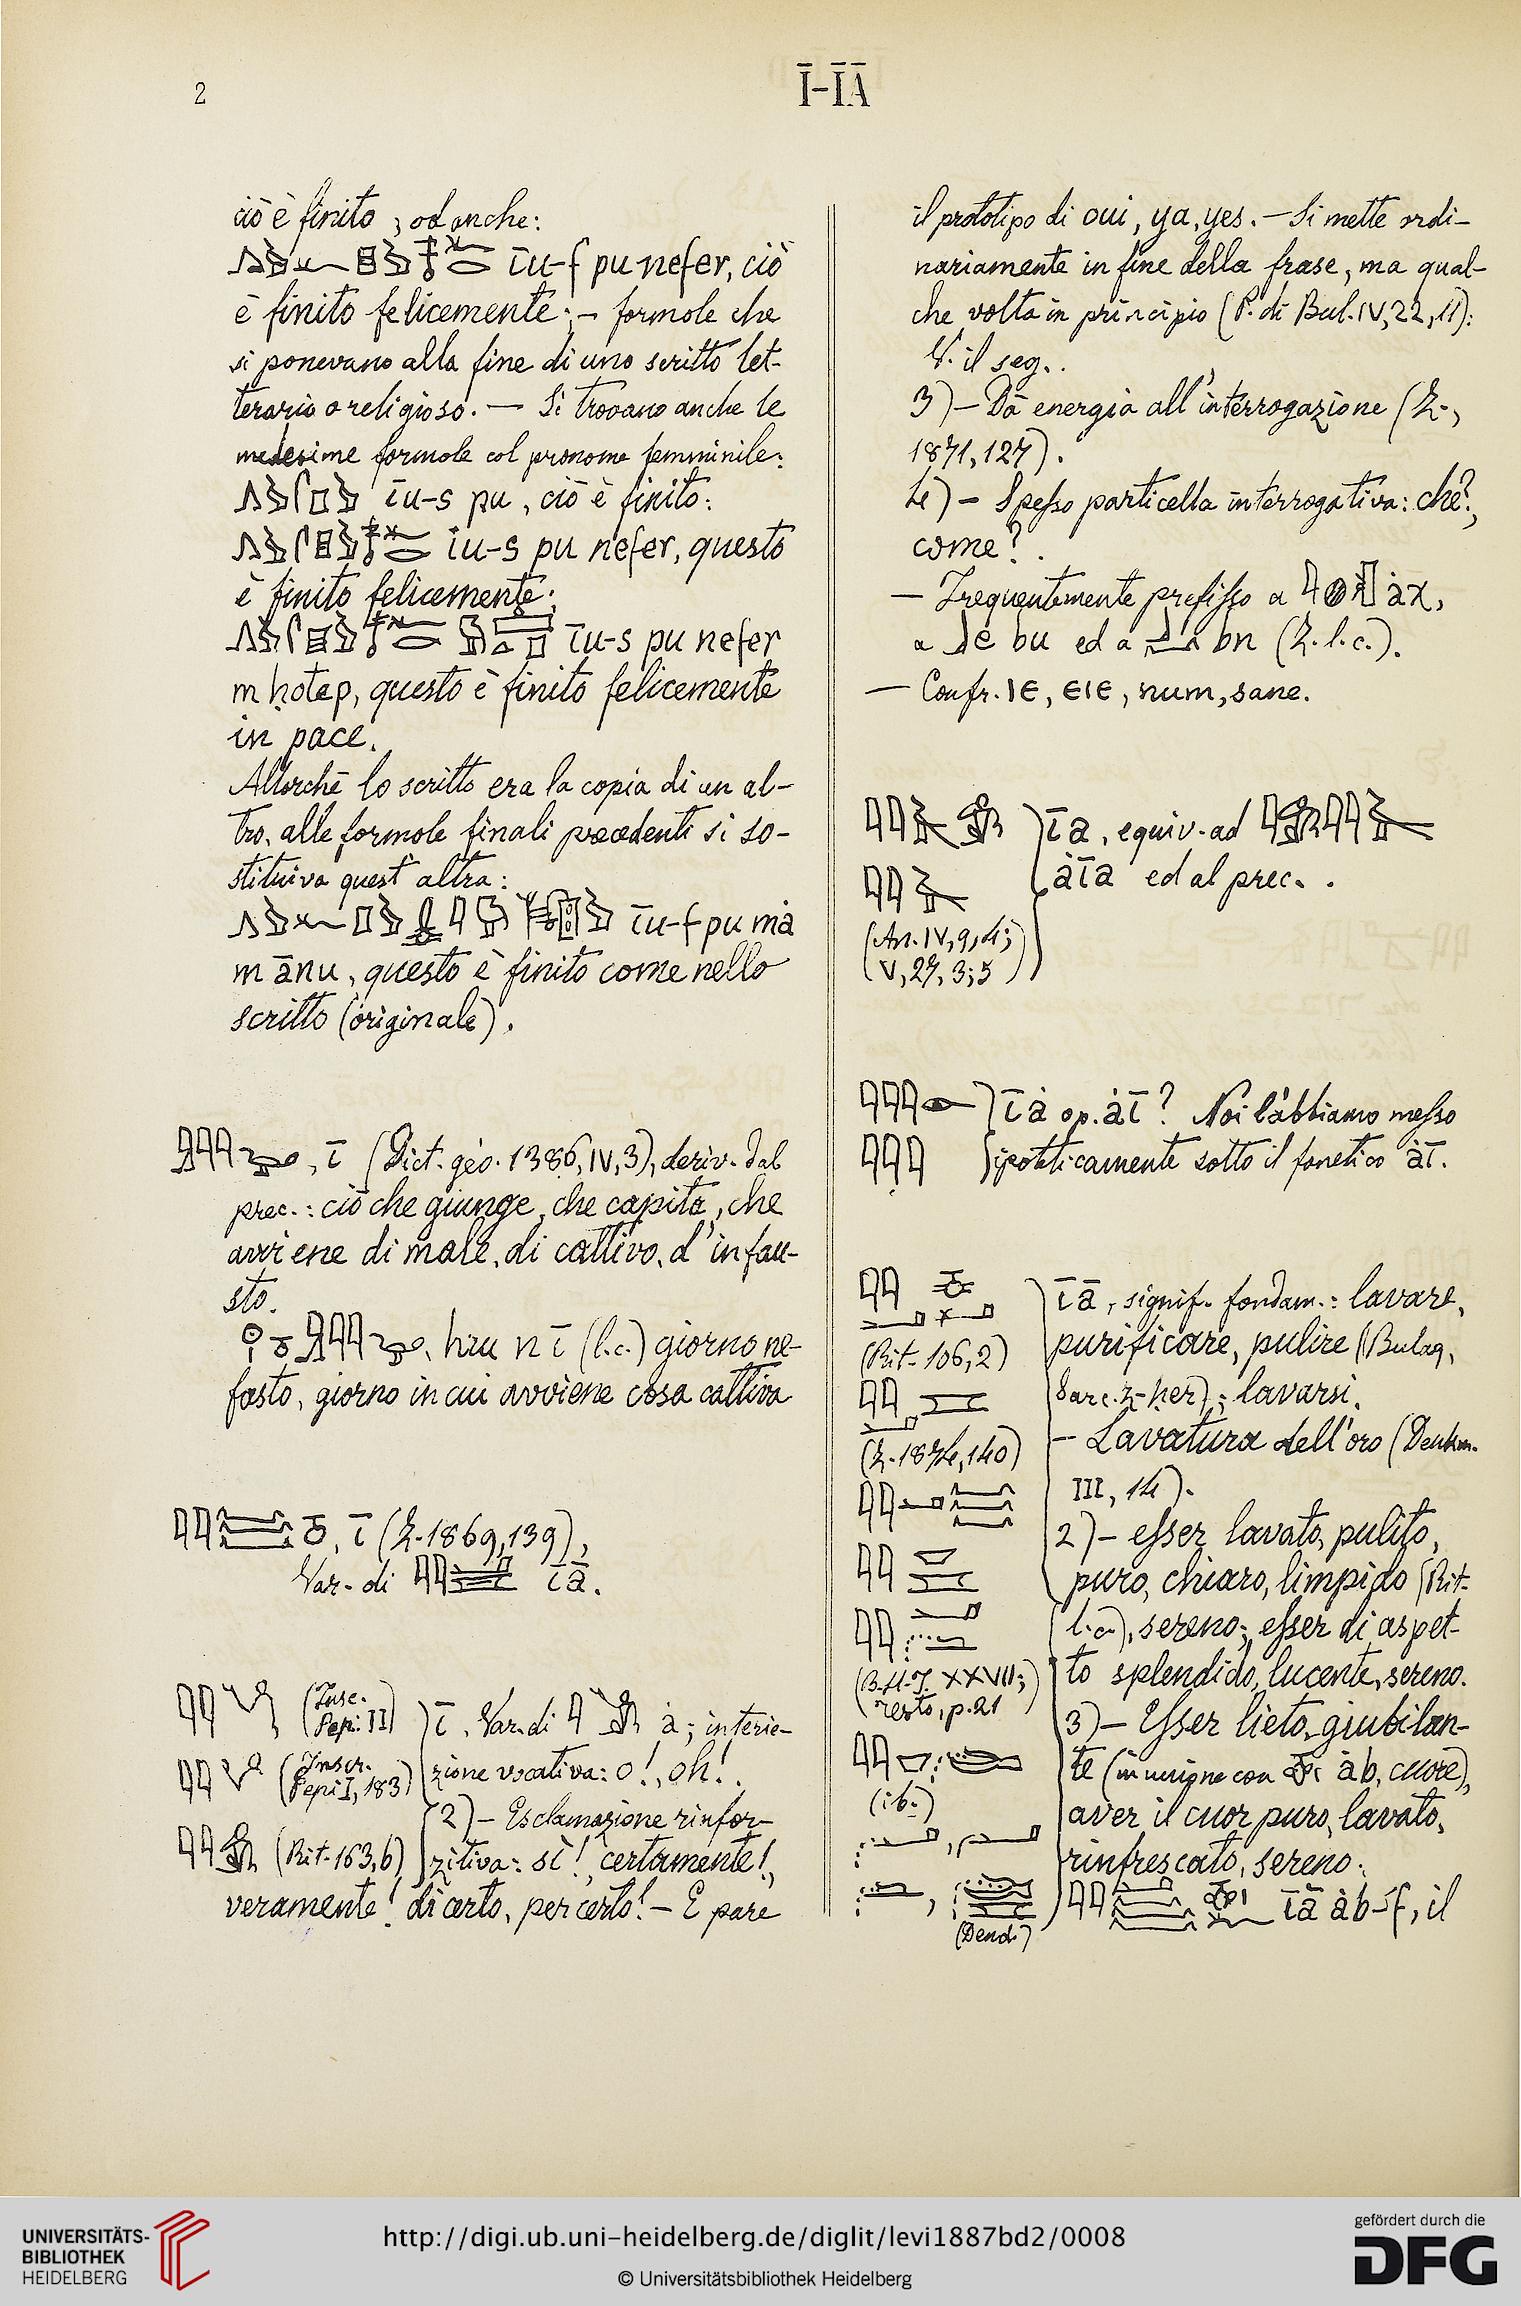 2
Ī-ĪA
ciò è finito; od anche:
īu-f pu nefer, ciò
è finito felicemente; – formole che
si ponevano alla fine di uno scritto let-
terario o religioso. — Si trovano anche le
medesime formole col pronome femminile:
īu-s pu, ciò è finito:
īu-s pu nefer, questo
è finito felicemente;
īu-s pu nefer
m ḥotep, questo è finito felicemente
in pace.
Allorchè lo scritto era la copia di un al-
tro, alle formole finali precedenti si so-
stituiva quest'altra:
īu-f pu mȧ
m ānu, questo è finito come nello
scritto (originale).
, ī (Dict. géo. 1386, IV, 3), deriv. dal
prec.: ciò che giunge, che capita, che
avviene di male, di cattivo, d'infau-
sto.
, hru n ī (l.c.) giorno ne-
fasto, giorno in cui avviene cosa cattiva
, ī (Z. 1869, 139),
Var. di īā.
(Insc. Pepi II)
(Inscr. Pepi I, 183)
(Rit. 163, 6)
ī, Var. di ȧ; interie-
zione vocativa: o!, oh!.
2) – Esclamazione rinfor-
zitiva: sì!, certamente!,
veramente! di certo, per certo! – E pare
il prototipo di oui, ya, yes. – Si mette ordi-
nariamente in fine della frase, ma qual-
che volta in principio (P. di Bul. IV, 22, 11):
V. il seg..
3) – Dà energia all'interrogazione (Z.,
1871, 127).
4) – Spesso particella interrogativa: chè?,
come?.
– Frequentemente prefisso a ȧχ,
a bu ed a bn (Z. l.c.).
— Confr. ⲓⲉ, ⲉⲓⲉ, num, sane.
īa, equiv. ad
ȧīa ed al prec..
(An. IV, 9, 4;
V, 27, 3; 5)
īȧ op. ȧī? Noi l'abbiamo messo
ipoteticamente sotto il fonetico ȧī.
(Rit. 106, 2)
(Z. 1874, 140)
(B.H.J. XXVII;
testo, p. 21
(ib.)
(Dend.)
īā, signif. fondam.: lavare,
purificare, pulire (Bulaq,
Sarc. Z-ḥer); lavarsi.
– Lavatura dell'oro (Denkm.
III, 14).
2) – esser lavato, pulito,
puro, chiaro, limpido (Rit.
l.c.), sereno; esser di aspet-
to splendido, lucente, sereno.
3) – Esser lieto, giubilan-
te (in unione con ȧb, cuore),
aver il cuor puro, lavato,
rinfrescato, sereno:
īā ȧb-f, il
UNIVERSITÄTS-
BIBLIOTHEK
HEIDELBERG
http://digi.ub.uni-heidelberg.de/diglit/levi1887bd2/0008
© Universitätsbibliothek Heidelberg
gefördert durch die
DFG